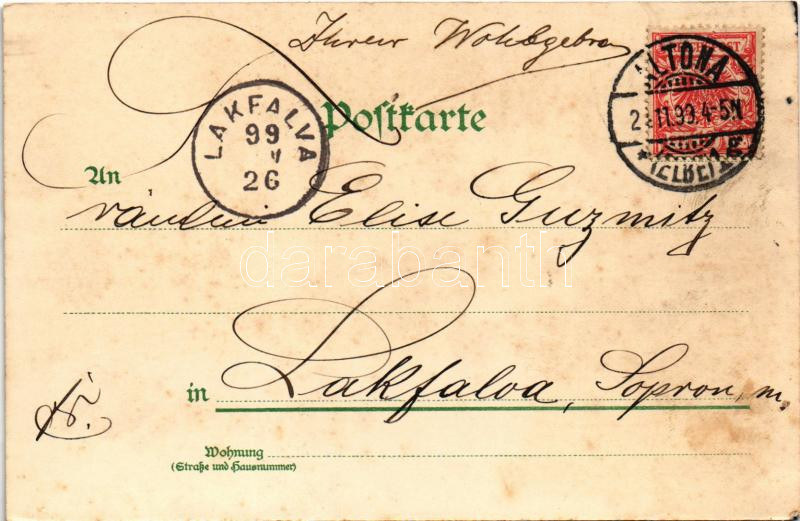 Ihrer Wohlgebren
ALTONA
2 11.99.4-5N
*(ELBE)*
LAKFALVA
99
26
Postkarte
An
Elise Guzmitz
in Lakfalva, Sopron, m.
Wohnung
(Straße und Hausnummer)
darabanth